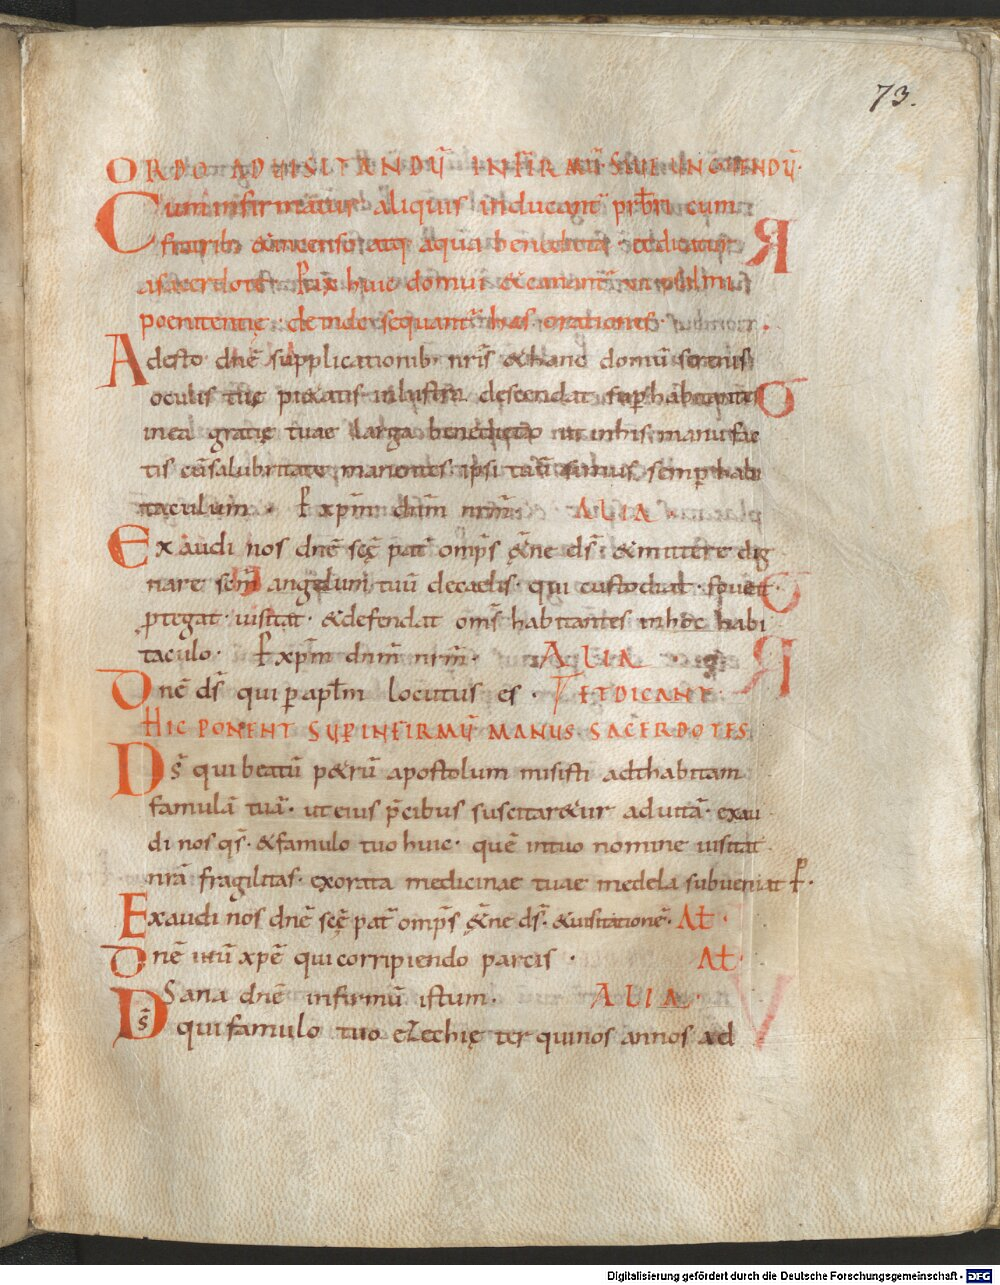 73.
ORDO AD VISITANDŪ INFIRMŪ SIVE UNGUENDŪ·
Cum infirmatus aliquis inducant̄ prb̄ri cum
frarib; & incenso atq; aqua benedicta · & dicatur
a sacerdote · Pax huic domui & canant̄ psalmi
poenitentię · deinde sequant̄ has orationes ·
Adesto dn̄e supplicationib; nr̄is & hanc domū serenis
oculis tuę pi&atis inlustra descendat sup habitantes
in ea gratię tuae larga benedictio ut in his manufac
tis cū salubritate manentes ipsi tuū simus semper habi
taculum · P xp̄m dn̄m nr̄m · ALIA
Exaudi nos dn̄e sc̄ę pat̄ omp̄s &̄ne ds̄ · & mittere dig
nare sc̄m̄ angelum tuū de caelis · qui custodiat · foveat ·
ptegat · visitat · & defendat oms̄ habitantes in hoc habi
taculo · P xp̄m dn̄m nr̄m · ALIA
Dnē ds̄ qui p apl̄m locutus es ·
HIC PONENT SUP INFIRMŪ MANUS SACERDOTES
Ds̄ qui beatū p&rū apostolum misisti ad thabitam
famulā tuā · ut eius p̄cibus suscitar&ur ad vitā · exau
di nos qs̄ · & famulo tuo huic · quē in tuo nomine visitat
nr̄a fragilitas · exorata medicinae tuae medela subveniat P ·
Exaudi nos dn̄e sc̄ę pat̄ omp̄s &̄ne ds̄ · & visitationē · AŁ ·
Dnē ihū xp̄e qui corripiendo parcis · AŁ ·
Sana dn̄e infirmū istum · ALIA ·
Ds̄ qui famulo tuo ezechię ter quinos annos ad
Digitalisierung gefördert durch die Deutsche Forschungsgemeinschaft - DFG